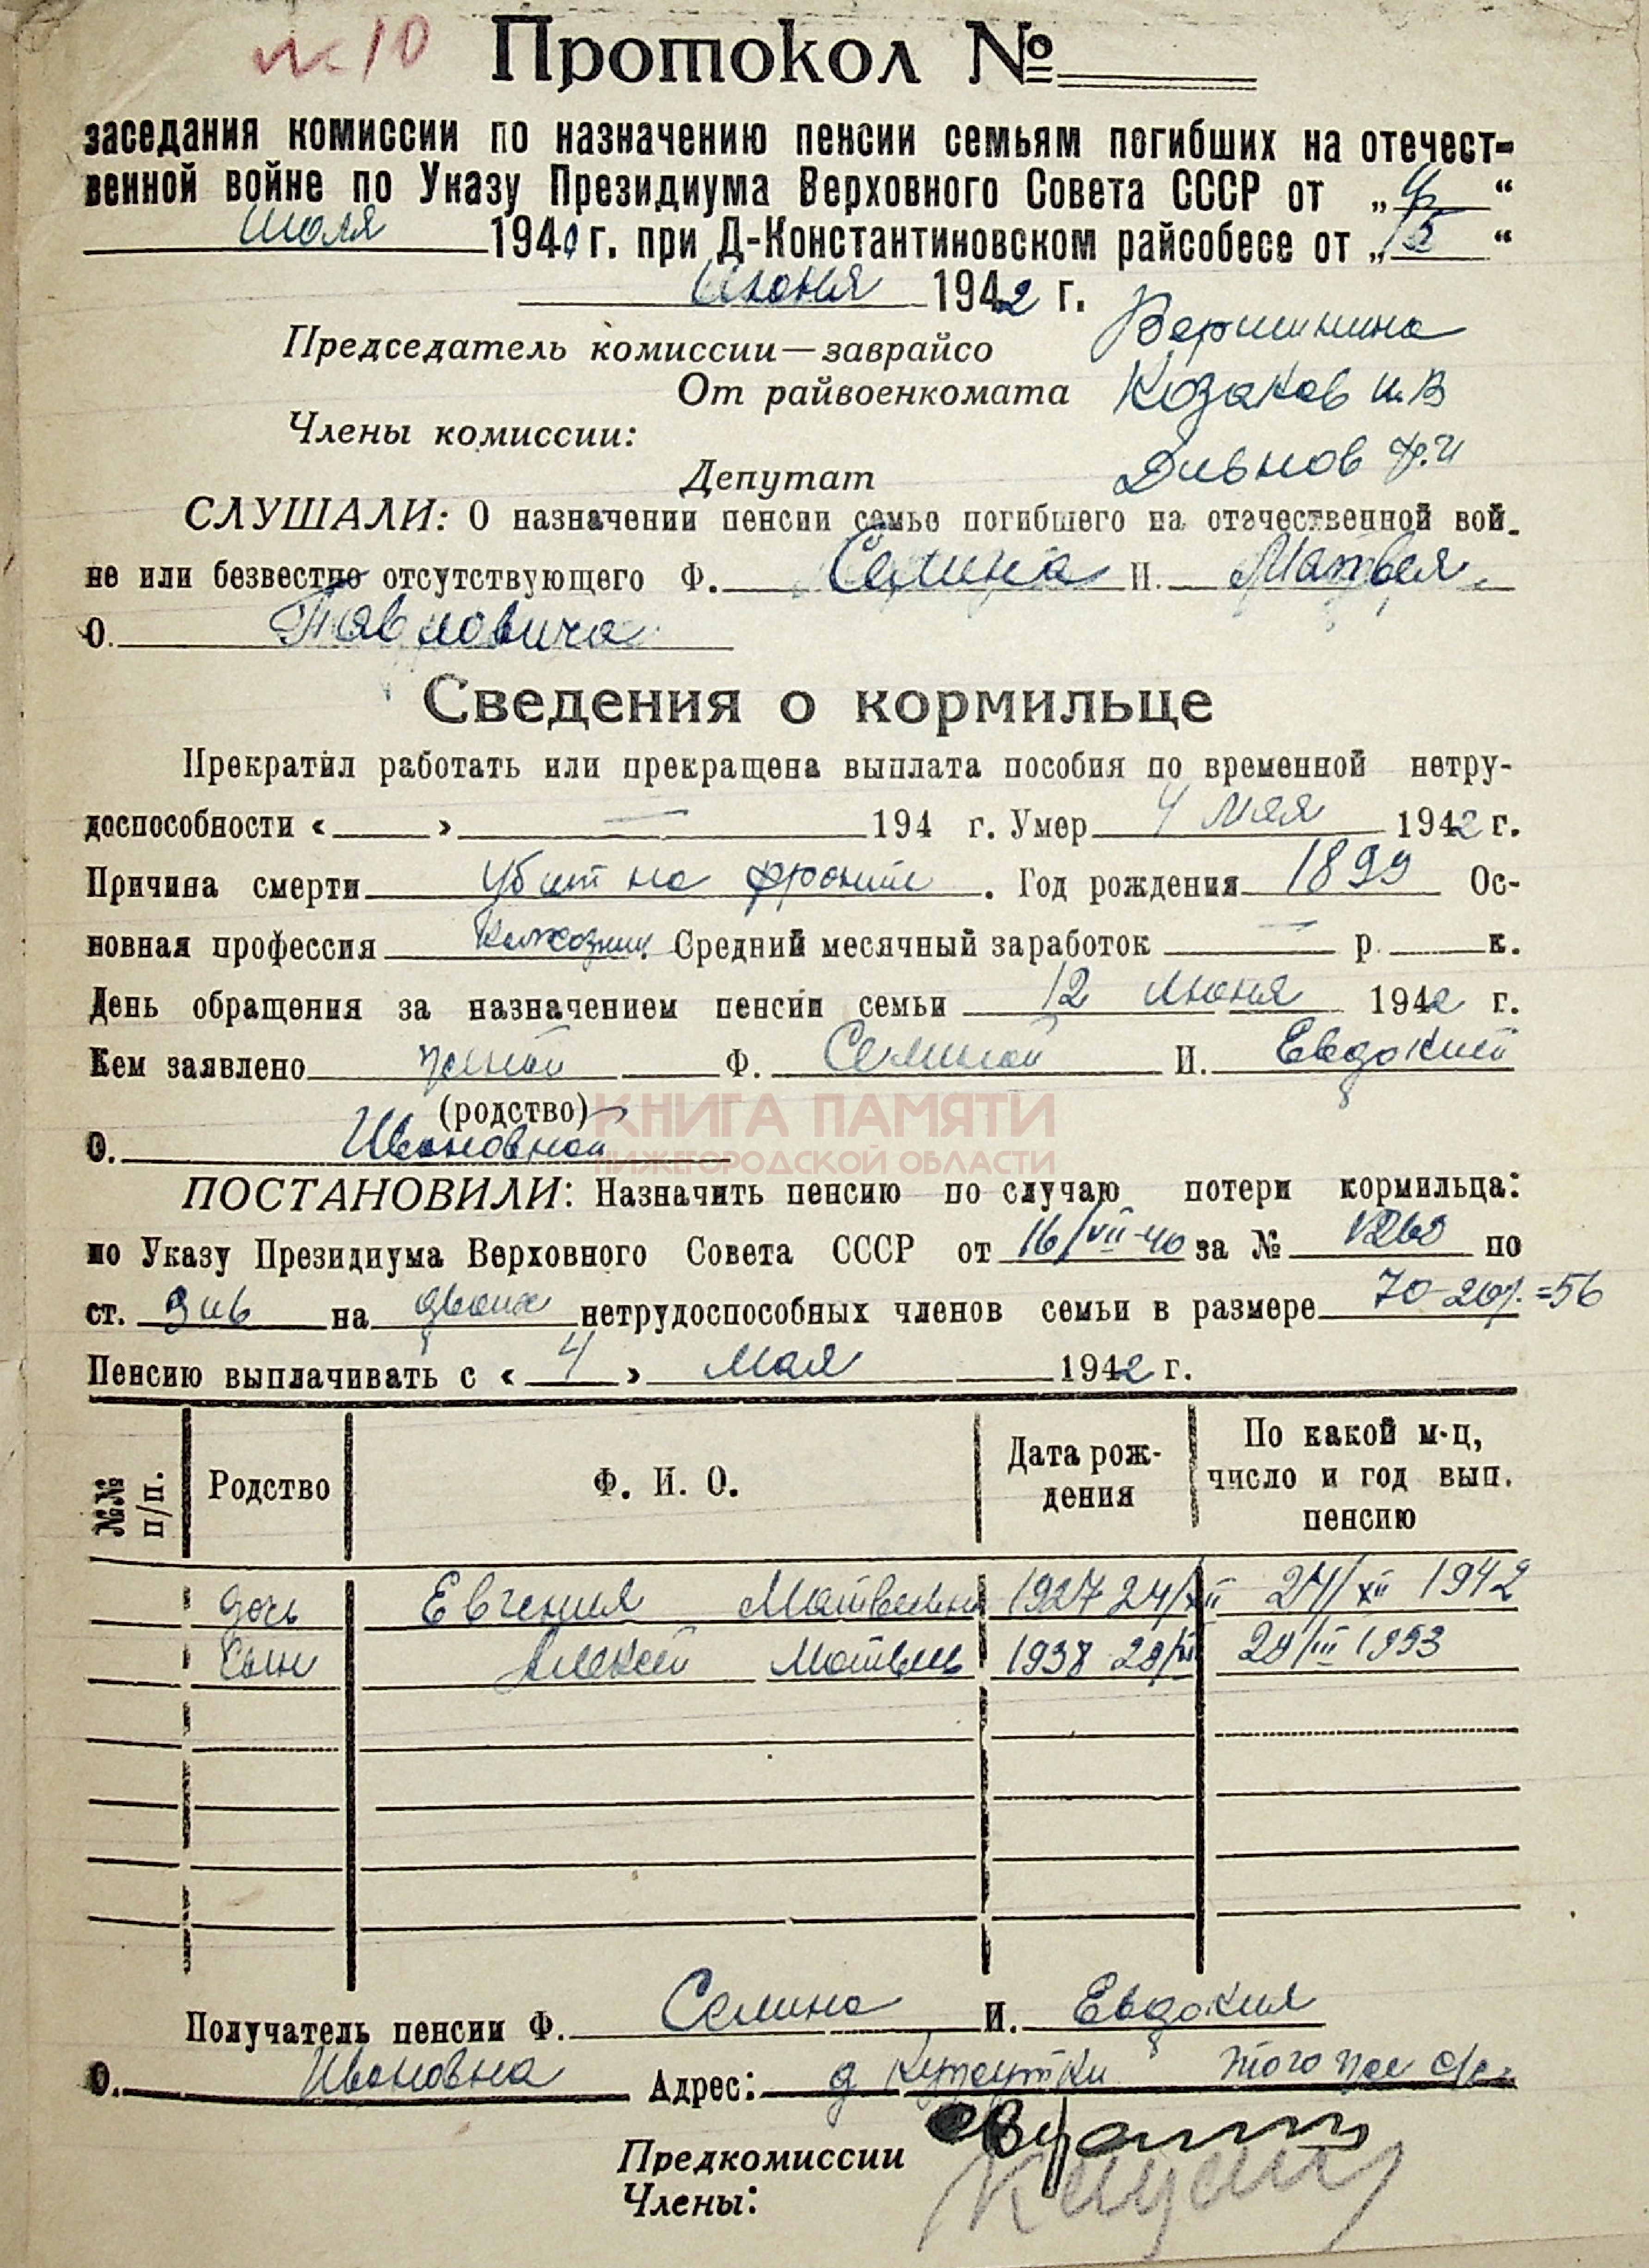 № 10
Протокол №
заседания комиссии по назначению пенсии семьям погибших на отечест-
венной войне по Указу Президиума Верховного Совета СССР от „ “
Июля 1940 г. при Д-Константиновском райсобесе от „15“
Июня 1942 г.
Председатель комиссии—заврайсо Вершинина
От райвоенкомата Козаков И.В
Члены комиссии:
Депутат Дивнов Ф.И
СЛУШАЛИ: О назначении пенсии семье погибшего на отечественной вой-
не или безвестно отсутствующего Ф. Семина И. Матвея
О. Павловича
Сведения о кормильце
Прекратил работать или прекращена выплата пособия по временной нетру-
доспособности « » — 194 г. Умер 4 мая 1942 г.
Причина смерти убит на фронте. Год рождения 1899 Ос-
новная профессия Колхозник. Средний месячный заработок — р. к.
День обращения за назначением пенсии семьи 12 июня 1942 г.
Кем заявлено женой Ф. Семиной И. Евдокией
(родство)
О. Ивановной
КНИГА ПАМЯТИ
НИЖЕГОРОДСКОЙ ОБЛАСТИ
ПОСТАНОВИЛИ: Назначить пенсию по случаю потери кормильца:
по Указу Президиума Верховного Совета СССР от 16/VII-40 за № 1269 по
ст. 3 и 6 на двоих нетрудоспособных членов семьи в размере 70-20% =56
Пенсию выплачивать с «4» мая 1942 г.
№№ п/п. Родство Ф. И. О. Дата рож-дения По какой м-ц, число и год вып. пенсию
дочь Евгения Матвеевн 1927 24/XII 24/XII 1942
сын Алексей Матвеев 1938 28/III 28/III 1953
Получатель пенсии Ф. Семина И. Евдокия
О. Ивановна Адрес: д этого же с/с
Предкомиссии
Члены: